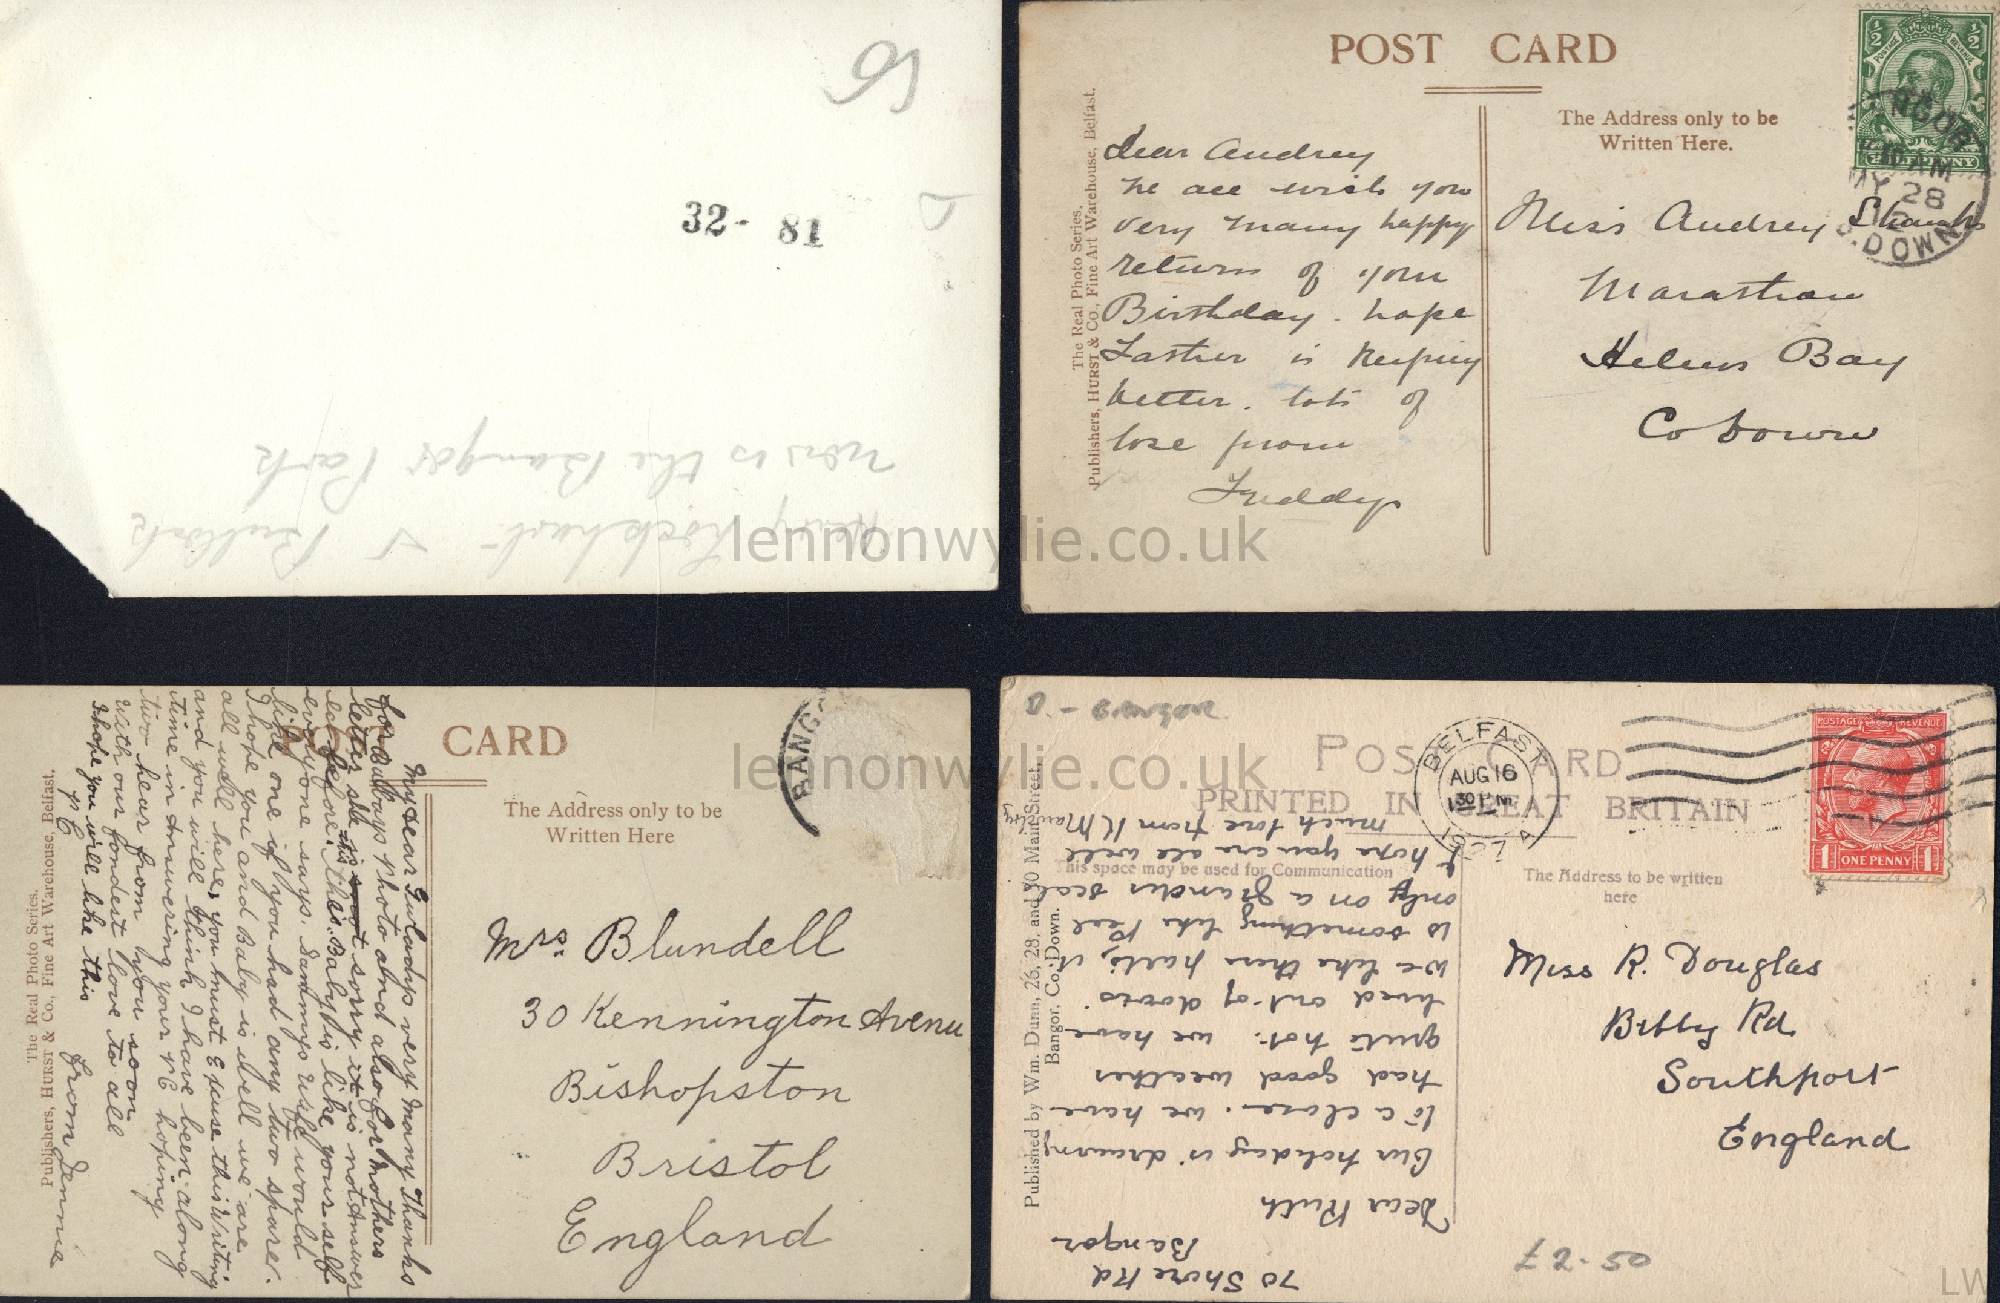 32- 81
news is the Bangor Park
Harry Lockhart
POST CARD
The Address only to be
Written Here.
The Real Photo Series.
Publishers, HURST & Co., Fine Art Warehouse, Belfast.
Dear Audrey
We all wish you
very many happy
returns of your
Birthday. hope
Father is keeping
better. lots of
love from
Freddy
Miss Audrey
Helens Bay
Co Down
1/2 1/2
POSTAGE REVENUE
HALFPENNY
NGOR
10 AM
MY 28
12
O. DOWN
lennonwylie.co.uk
POST CARD
The Address only to be
Written Here
BANG
The Real Photo Series.
Publishers, HURST & Co., Fine Art Warehouse, Belfast.
My dear Gulady very many Thanks
for Babys photo and also for Mothers
letter she is sorry it is not answer
ed before this. Baby is like yourself
everyone says. Sammys wife would
like one if you had any two spare.
I hope you and Baby is well we are
all well here, you must Excuse this writing
and you will think I have been along
time in Answering your PC hoping
two hear from you soon
with our fondest love to all
I hope you will like this
PC
from Jennie
Mrs. Blundell
30 Kennington Avenu
Bishopston
Bristol
England
lennonwylie.co.uk
Bangor
POST CARD
PRINTED IN GREAT BRITAIN
This space may be used for Communication
The Address to be written
here
Published by Wm. Dunn, 26, 28, and 30 Main Street,
Bangor, Co. Down.
BELFAST
AUG 16
130 PM
1927
A
POSTAGE REVENUE
1 ONE PENNY 1
70 Shore Rd
Bangor
Dear Ruth
Our holiday is drawing
to a close. we have
had good weather
quite hot. we have
lived out-of doors.
we like there parts, it
is something like Peel
only on a grander scale
I hope you are all well
much love from K M
Miss R. Douglas
Bibby Rd
Southport
England
£2-50
LW